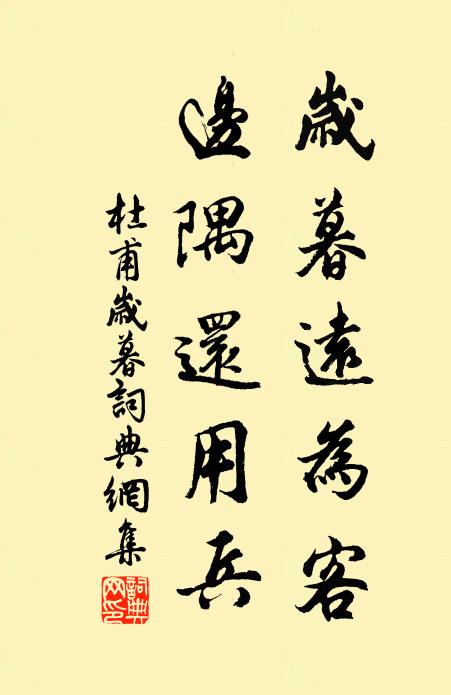 歲暮遠為客
邊隅還用兵
杜甫歲暮詞典網集
詞典網印